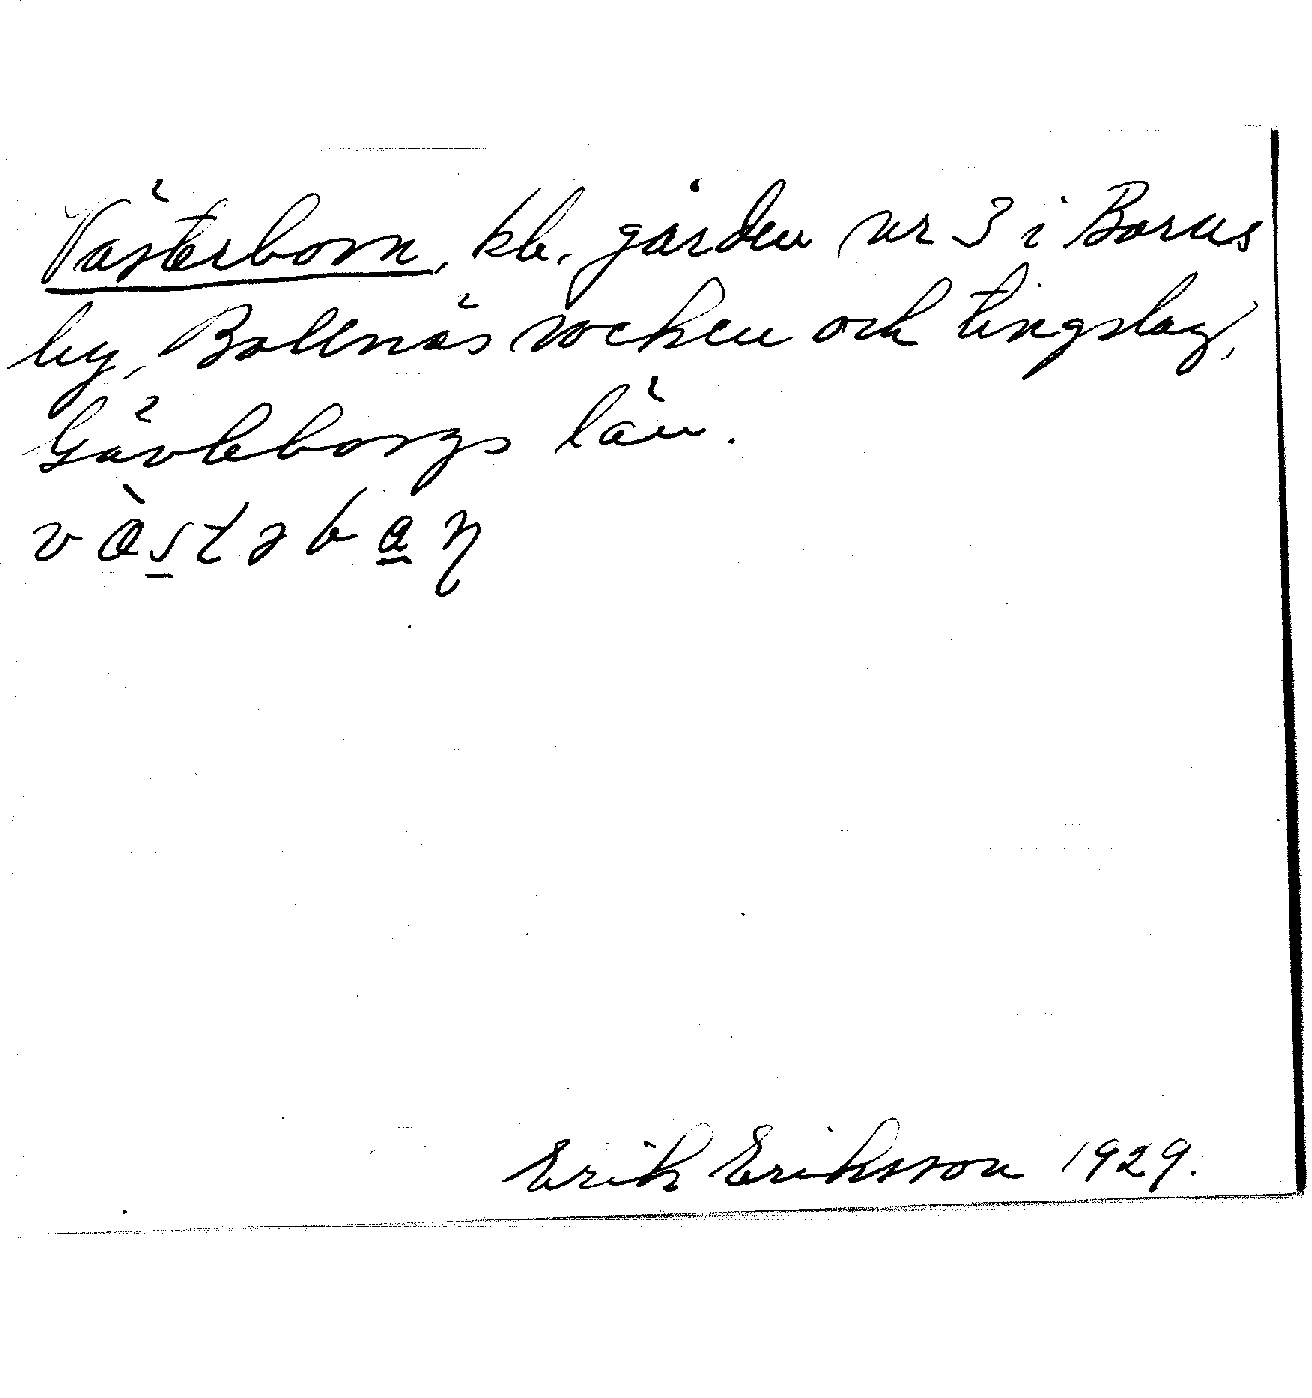 Västerborn, kb. gården nr 3 i Borns
by, Bollnäs socken och tingslag,
Gävleborgs län.
væ̀stəbaɳ
Erik Eriksson 1929.